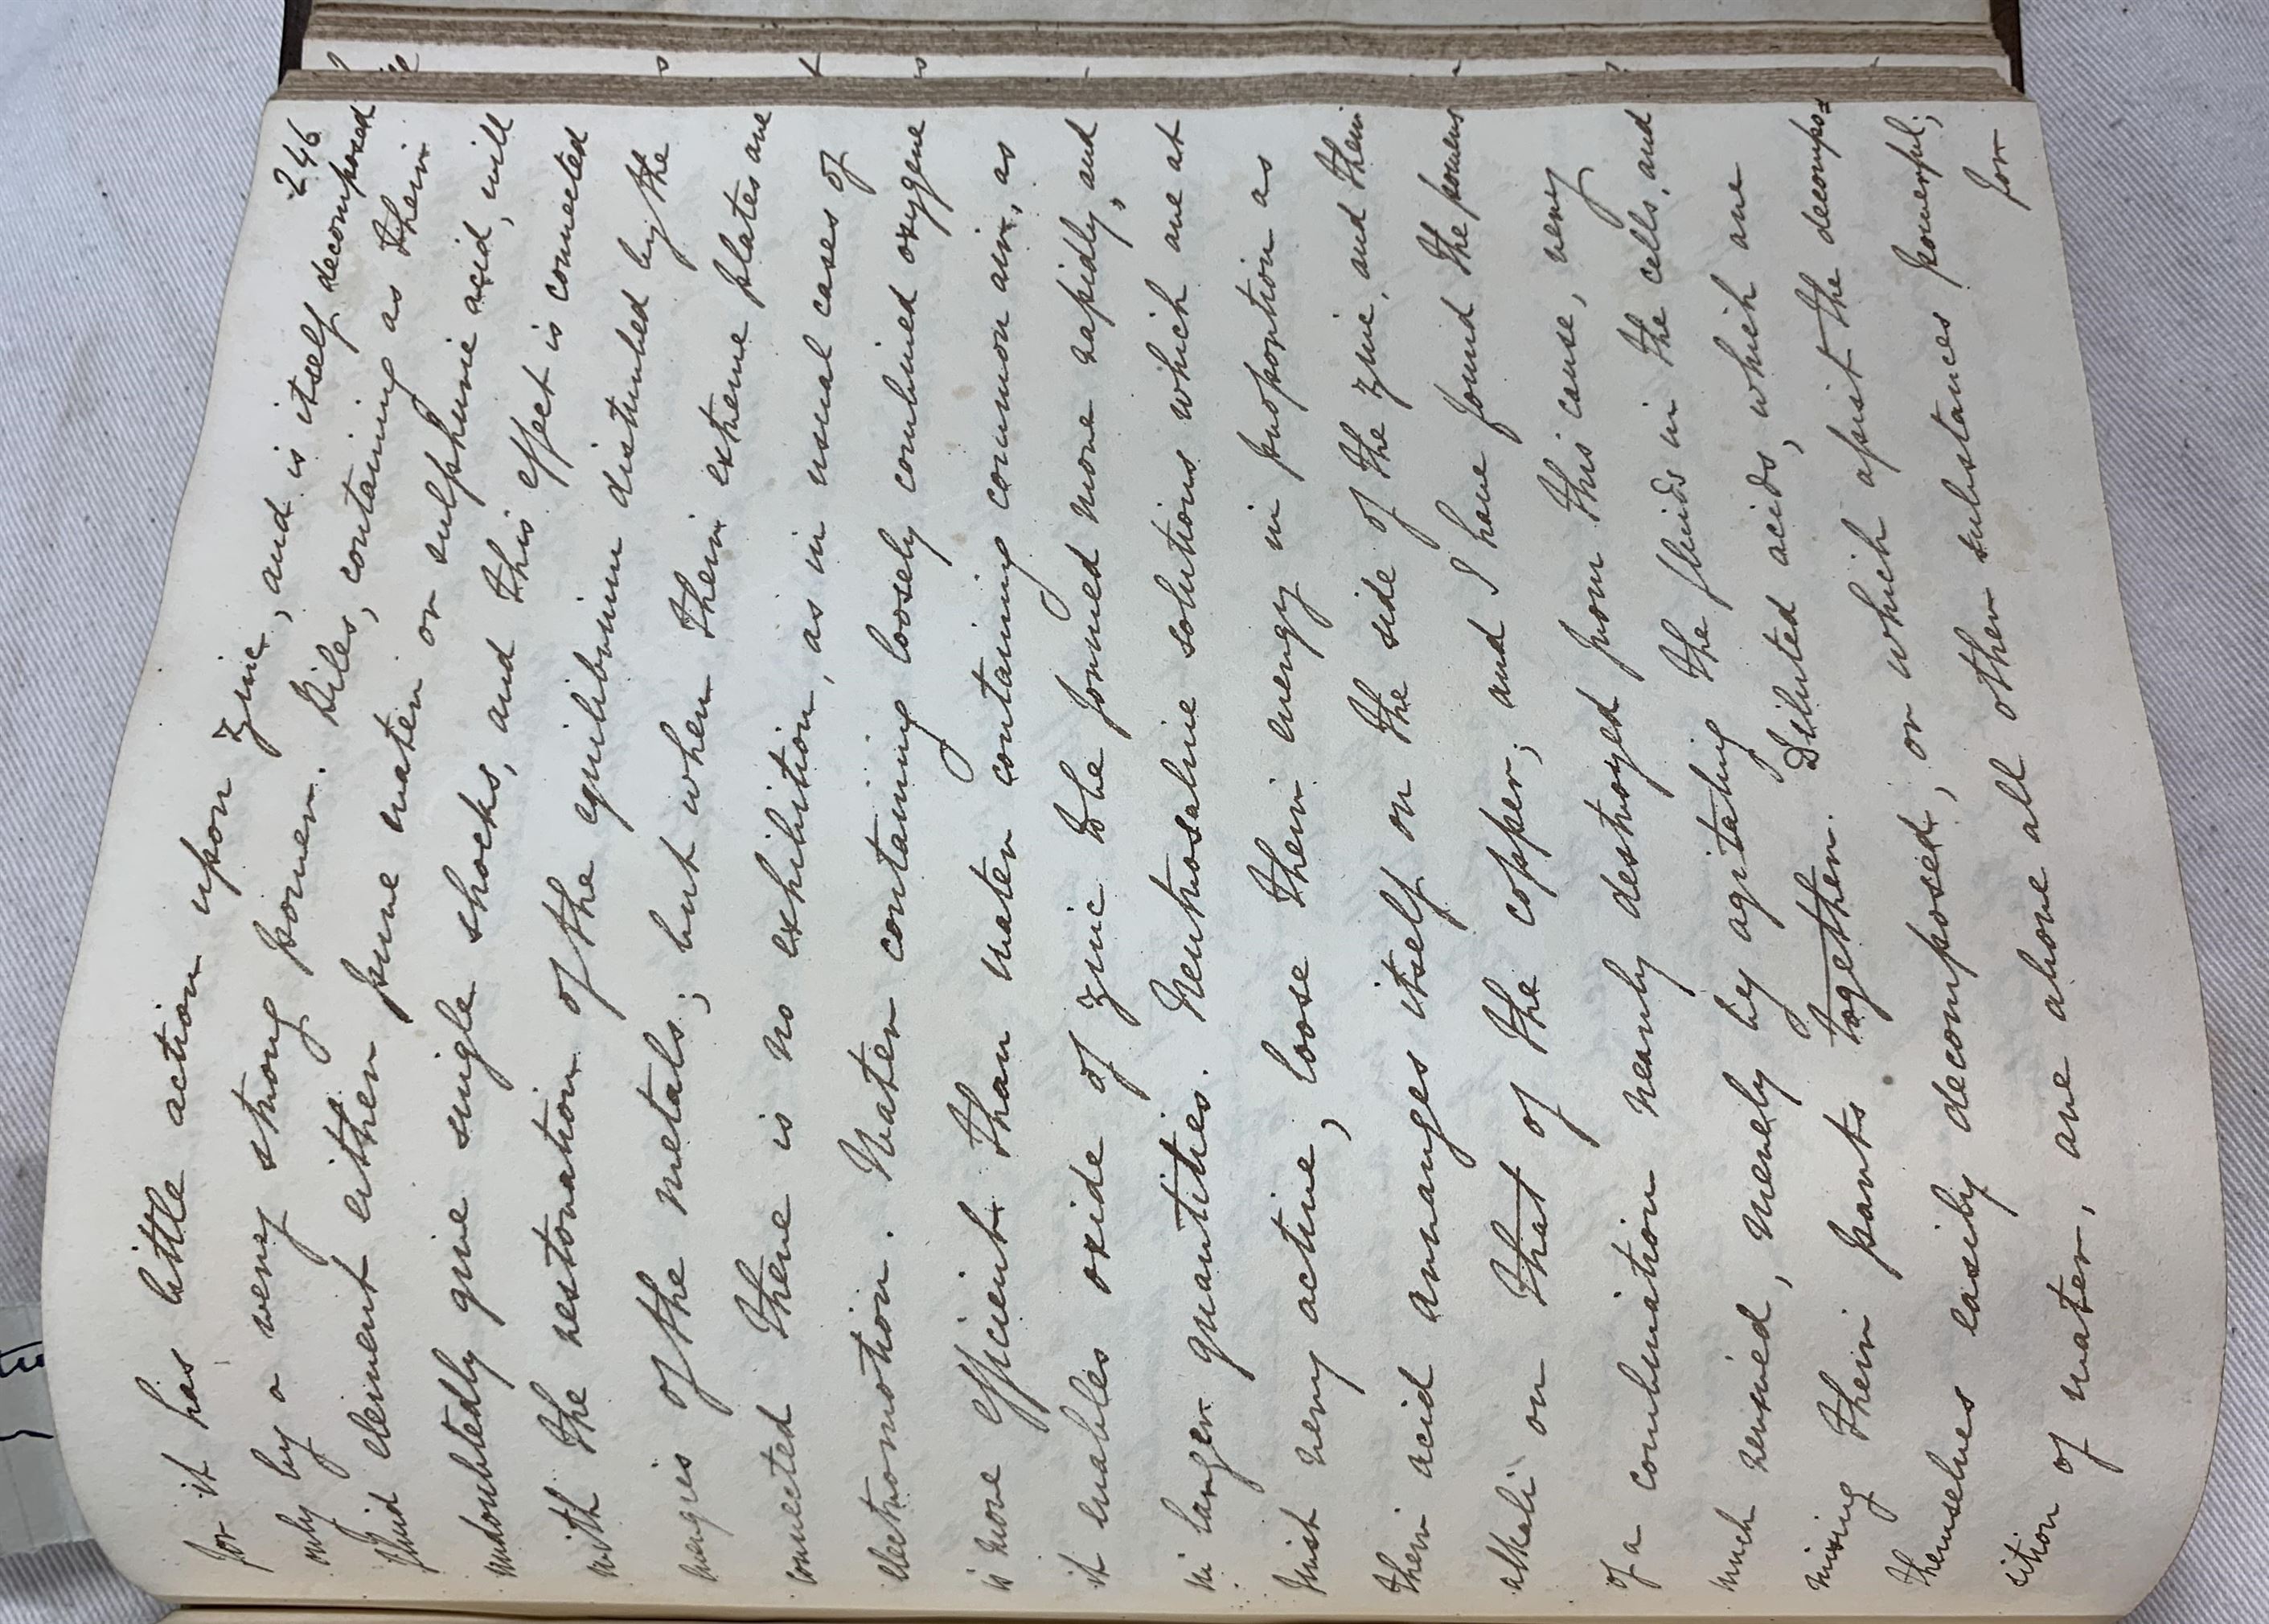 246
for it has little action upon zinc, and is itself decomposed
only by a very strong power. Piles, containing as their
fluid element either pure water or sulphuric acid, will
undoubtedly give single shocks, and this effect is connected
with the restoration of the equilibrium disturbed by the
energies of the metals; but when their extreme plates are
connected there is no exhibition, as in usual cases of
electromotion. Water containing loosely combined oxygene
is more efficient than water containing common air, as
it enables oxide of zinc to be formed more rapidly, and
in larger quantities. Neutrosaline solutions which are at
first very active, loose their energy in proportion as
their acid arranges itself on the side of the zinc, and their
alkali on that of the copper; and I have found the powers
of a combination nearly destroyed from this cause, very
much revived, merely by agitating the fluids in the cells, and
mixing their parts together. Diluted acids, which are
themselves easily decomposed, or which assist the decompo=
sition of water, are above all other substances powerful;
for